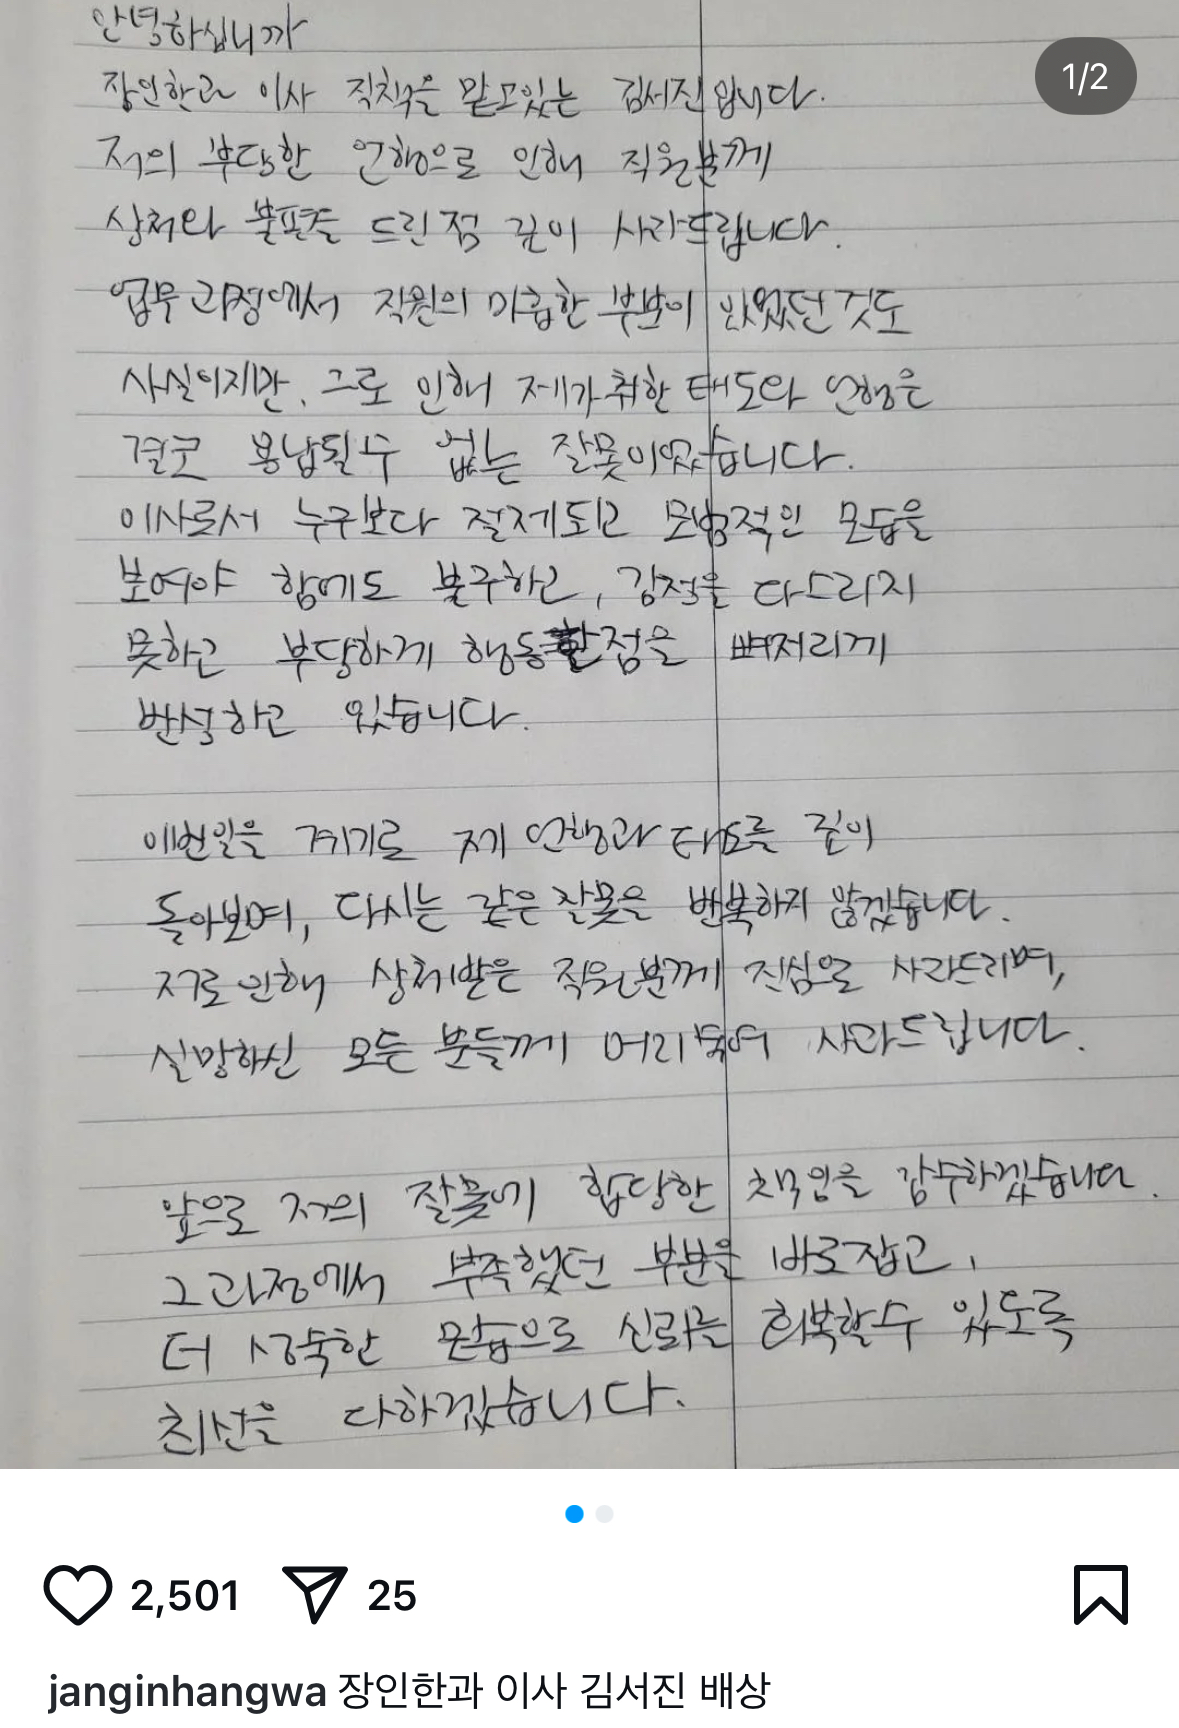 안녕하십니까
1/2
장인한과 이사 직책을 맡고있는 김서진입니다.
저의 부당한 언행으로 인해 직원분께
상처와 불편을 드린 점 깊이 사과드립니다.
업무 과정에서 직원의 미흡한 부분이 있었던 것도
사실이지만, 그로 인해 제가 취한 태도와 언행은
결코 용납될 수 없는 잘못이었습니다.
이사로서 누구보다 절제되고 모범적인 모습을
보여야 함에도 불구하고, 감정을 다스리지
못하고 부당하게 행동한점을 뼈저리게
반성하고 있습니다.
이번일을 계기로 제 언행과 태도를 깊이
돌아보며, 다시는 같은 잘못을 반복하지 않겠습니다.
저로 인해 상처받은 직원분께 진심으로 사과드리며,
실망하신 모든 분들께 머리숙여 사과드립니다.
앞으로 저의 잘못에 합당한 책임을 감수하겠습니다.
그 과정에서 부족했던 부분을 바로잡고,
더 성숙한 모습으로 신뢰를 회복할 수 있도록
최선을 다하겠습니다.
2,501 25
janginhangwa 장인한과 이사 김서진 배상